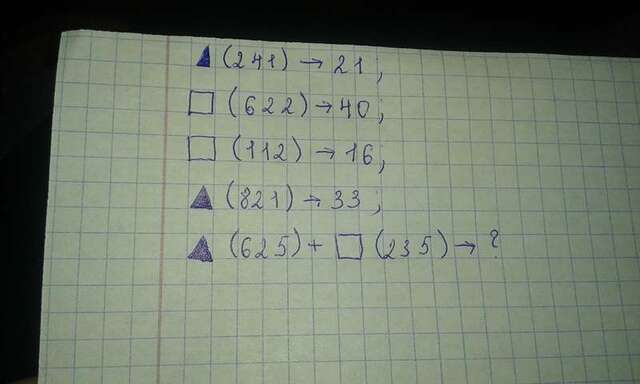 ▲ (241) → 21;
□ (622) → 40;
□ (112) → 16;
▲ (821) → 33;
▲ (625) + □ (235) → ?